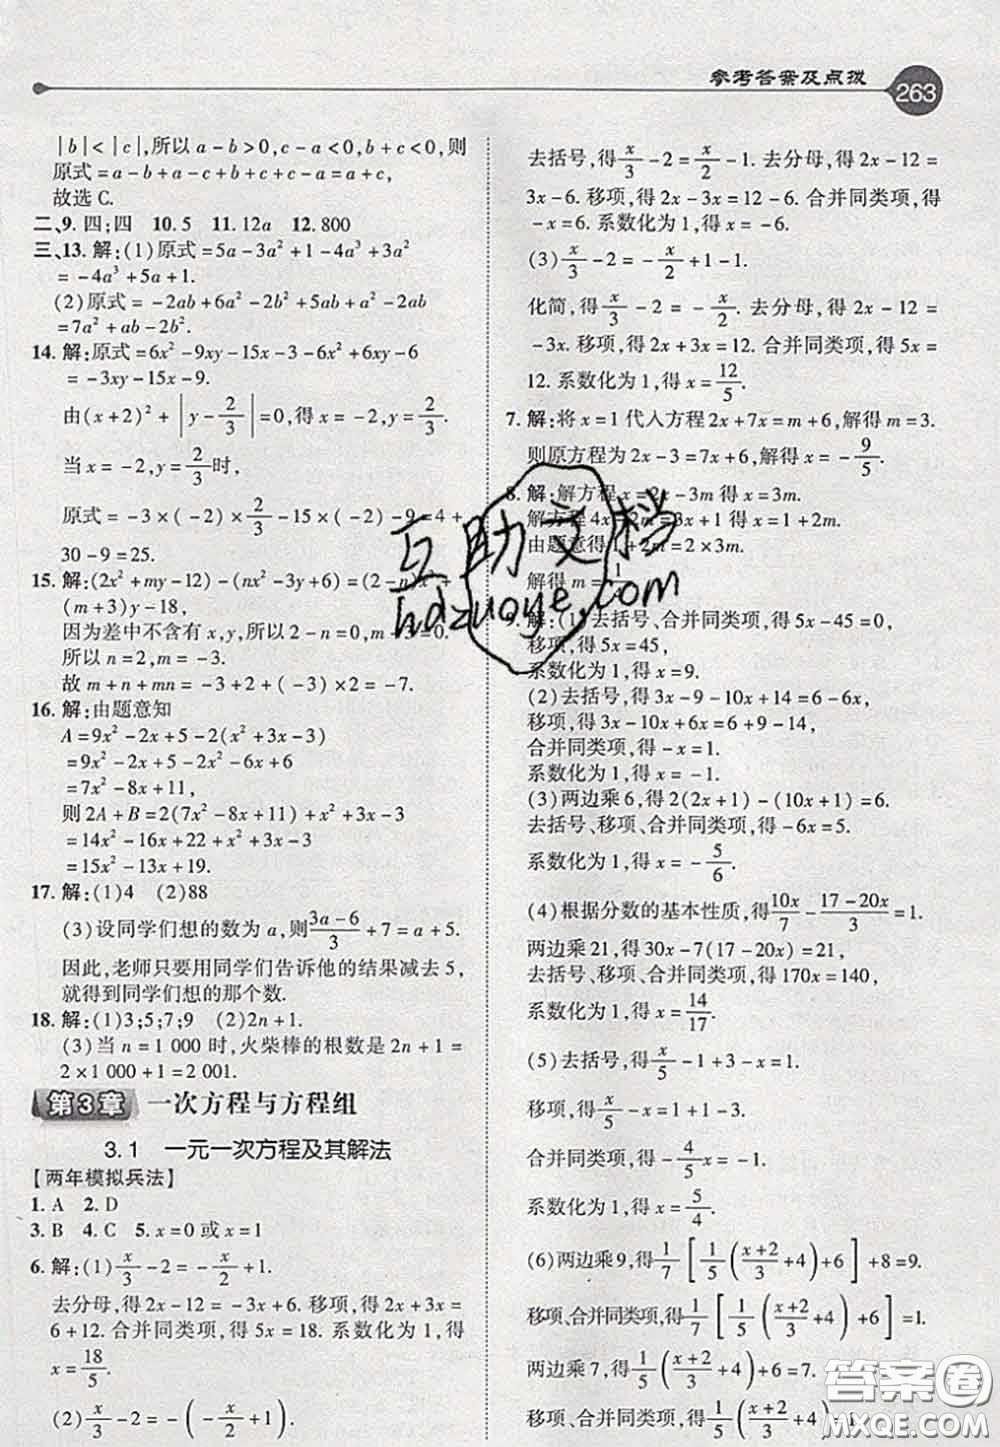 参考答案及点拨
263
|b|<|c|,所以a-b>0,c-a<0,b+c<0,则
原式=a-b+a-c+b+c-a=a+c,
故选C.
二、9.四;四 10.5 11.12a 12.800
三、13.解:(1)原式=5a-3a²+1-4a³+3a²
=-4a³+5a+1.
(2)原式=-2ab+6a²-2b²+5ab+a²-2ab
=7a²+ab-2b².
14.解:原式=6x²-9xy-15x-3-6x²+6xy-6
=-3xy-15x-9.
由(x+2)²+|y-2/3|=0,得x=-2,y=2/3.
当x=-2,y=2/3时,
原式=-3×(-2)×2/3-15×(-2)-9=4+
30-9=25.
15.解:(2x²+my-12)-(nx²-3y+6)=(2-n)x²+
(m+3)y-18,
因为差中不含有x,y,所以2-n=0,m+3=0.
所以n=2,m=-3.
故m+n+mn=-3+2+(-3)×2=-7.
16.解:由题意知
A=9x²-2x+5-2(x²+3x-3)
=9x²-2x+5-2x²-6x+6
=7x²-8x+11,
则2A+B=2(7x²-8x+11)+x²+3x-3
=14x²-16x+22+x²+3x-3
=15x²-13x+19.
17.解:(1)4 (2)88
(3)设同学们想的数为a,则(3a-6)/3+7=a+5.
因此,老师只要用同学们告诉他的结果减去5,
就得到同学们想的那个数.
18.解:(1)3;5;7;9 (2)2n+1.
(3)当n=1 000时,火柴棒的根数是2n+1=
2×1 000+1=2001.
第3章 一次方程与方程组
3.1 一元一次方程及其解法
【两年模拟兵法】
1.A 2.D
3.B 4.C 5.x=0或x=1
6.解:(1)x/3-2=-x/2+1.
去分母,得2x-12=-3x+6.移项,得2x+3x=
6+12.合并同类项,得5x=18.系数化为1,得
x=18/5.
(2)x/3-2=-(-x/2+1).
去括号,得x/3-2=x/2-1.去分母,得2x-12=
3x-6.移项,得2x-3x=12-6.合并同类项,得
-x=6.系数化为1,得x=-6.
(3)x/3-2=-x/2+1-1.
化简,得x/3-2=-x/2.去分母,得2x-12=
-3x.移项,得2x+3x=12.合并同类项,得5x=
12.系数化为1,得x=12/5.
7.解:将x=1代入方程2x+7x=m+6,解得m=3.
则原方程为2x-3=7x+6,解得x=-9/5.
8.解:解方程x=2x-3m得x=3m.
解方程4x-2m=3x+1得x=1+2m.
由题意得1+2m=2×3m.
解得m=1/
9.解:(1)去括号、合并同类项,得5x-45=0,
移项,得5x=45,
系数化为1,得x=9.
(2)去括号,得3x-9-10x+14=6-6x,
移项,得3x-10x+6x=6+9-14,
合并同类项,得-x=1.
系数化为1,得x=-1.
(3)两边乘6,得2(2x+1)-(10x+1)=6.
去括号、移项、合并同类项,得-6x=5.
系数化为1,得x=-5/6.
(4)根据分数的基本性质,得10x/7-(17-20x)/3=1.
两边乘21,得30x-7(17-20x)=21,
去括号、移项、合并同类项,得170x=140,
系数化为1,得x=14/17.
(5)去括号,得x/5-1+3-x=1,
移项,得x/5-x=1+1-3.
合并同类项,得-4/5x=-1.
系数化为1,得x=5/4.
(6)两边乘9,得1/7[1/5((x+2)/3+4)+6]+8=9.
移项、合并同类项,得1/7[1/5((x+2)/3+4)+6]=1.
两边乘7,得1/5((x+2)/3+4)+6=7.
移项、合并同类项,得1/5((x+2)/3+4)=1.
互助文档
hdzuoye.com
答案圈
MXQE.COM